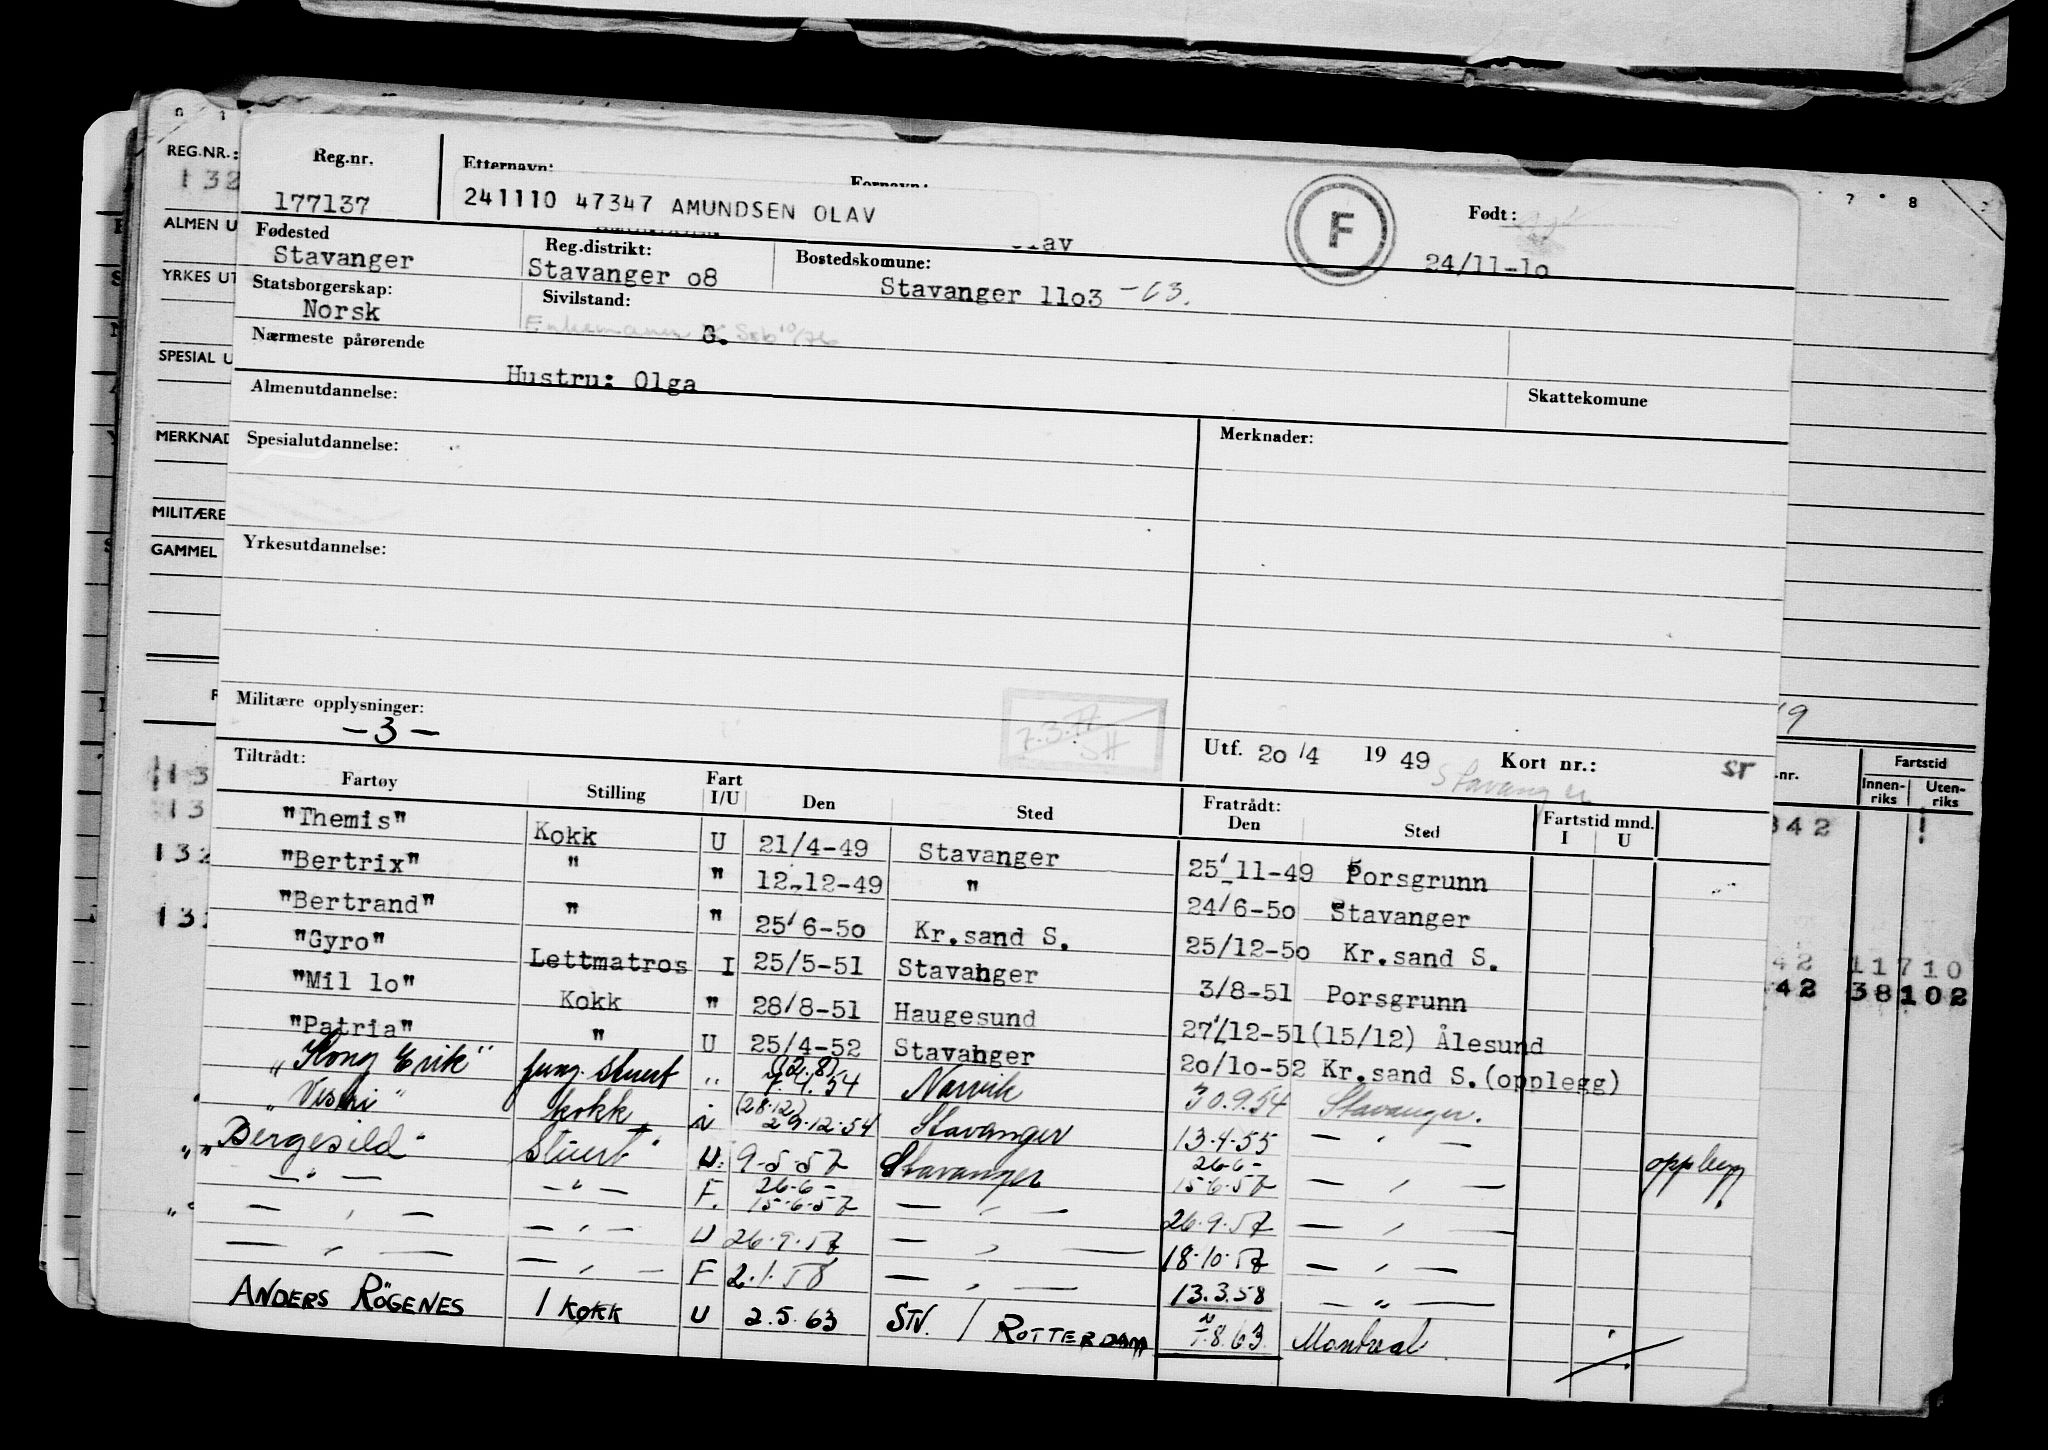 REG.NR.:
132
ALMEN U
YRKES UT
SPESIAL U
MERKNAD
MILITÆRE
GAMMEL
Reg.nr. Etternavn: Fornavn: Født:
177137 241110 47347 AMUNDSEN OLAV F
lav 24/11-1o
Fødested Reg.distrikt: Bostedskomune:
Stavanger Stavanger o8 Stavanger 11o3 -03.
Statsborgerskap: Sivilstand:
Norsk Enkemann G. Seb 10/76
Nærmeste pårørende
Hustru: Olga
Almenutdannelse: Skattekomune
Spesialutdannelse: Merknader:
Yrkesutdannelse:
Militære opplysninger:
-3-
Utf. 2o/4 19 49 Kort nr.: ST
Stavanger
Tiltrådt: Fratrådt:
Fartøy Stilling Fart I/U Den Sted Den Sted Fartstid mnd. I U
"Themis" Kokk U 21/4-49 Stavanger 25/11-49 Porsgrunn
"Bertrix" " " 12-12-49 " 24/6-5o Stavanger
"Bertrand" " " 25/6-5o Kr.sand S. 25/12-5o Kr.sand S.
"Gyro" Lettmatros I 25/5-51 Stavanger 3/8-51 Porsgrunn
"Mil lo" Kokk " 28/8-51 Haugesund 27/12-51 (15/12) Ålesund
"Patria" " U 25/4-52 Stavanger 2o/1o-52 Kr.sand S.(opplegg)
"Kong Erik" jung. stuert " (12.8) 7.4.54 Narvik 30.9.54 Stavanger.
"Vestri" kokk (28.12) 29.12.54 Stavanger 13.4.55 — " —
"Bergesild" Stuert U. 9.5.57 Stavanger 26.6- 15.6.57 — " — opplegg
— " — — " — F. 26.6- 15.6.57 — " — 26.9.57 — "
— " — — " — U 26.9.57 — " — 18.10.57 — " —
— " — — " — F 2.1.58 — " — 13.3.58 — " —
ANDERS RÖGENES 1 KOKK U 2.5.63 STV. / ROTTERDAM 7.8.63. Montreal
19
.nr. Fartstid
Innen-riks Uten-riks
342
42 11710
42 38102